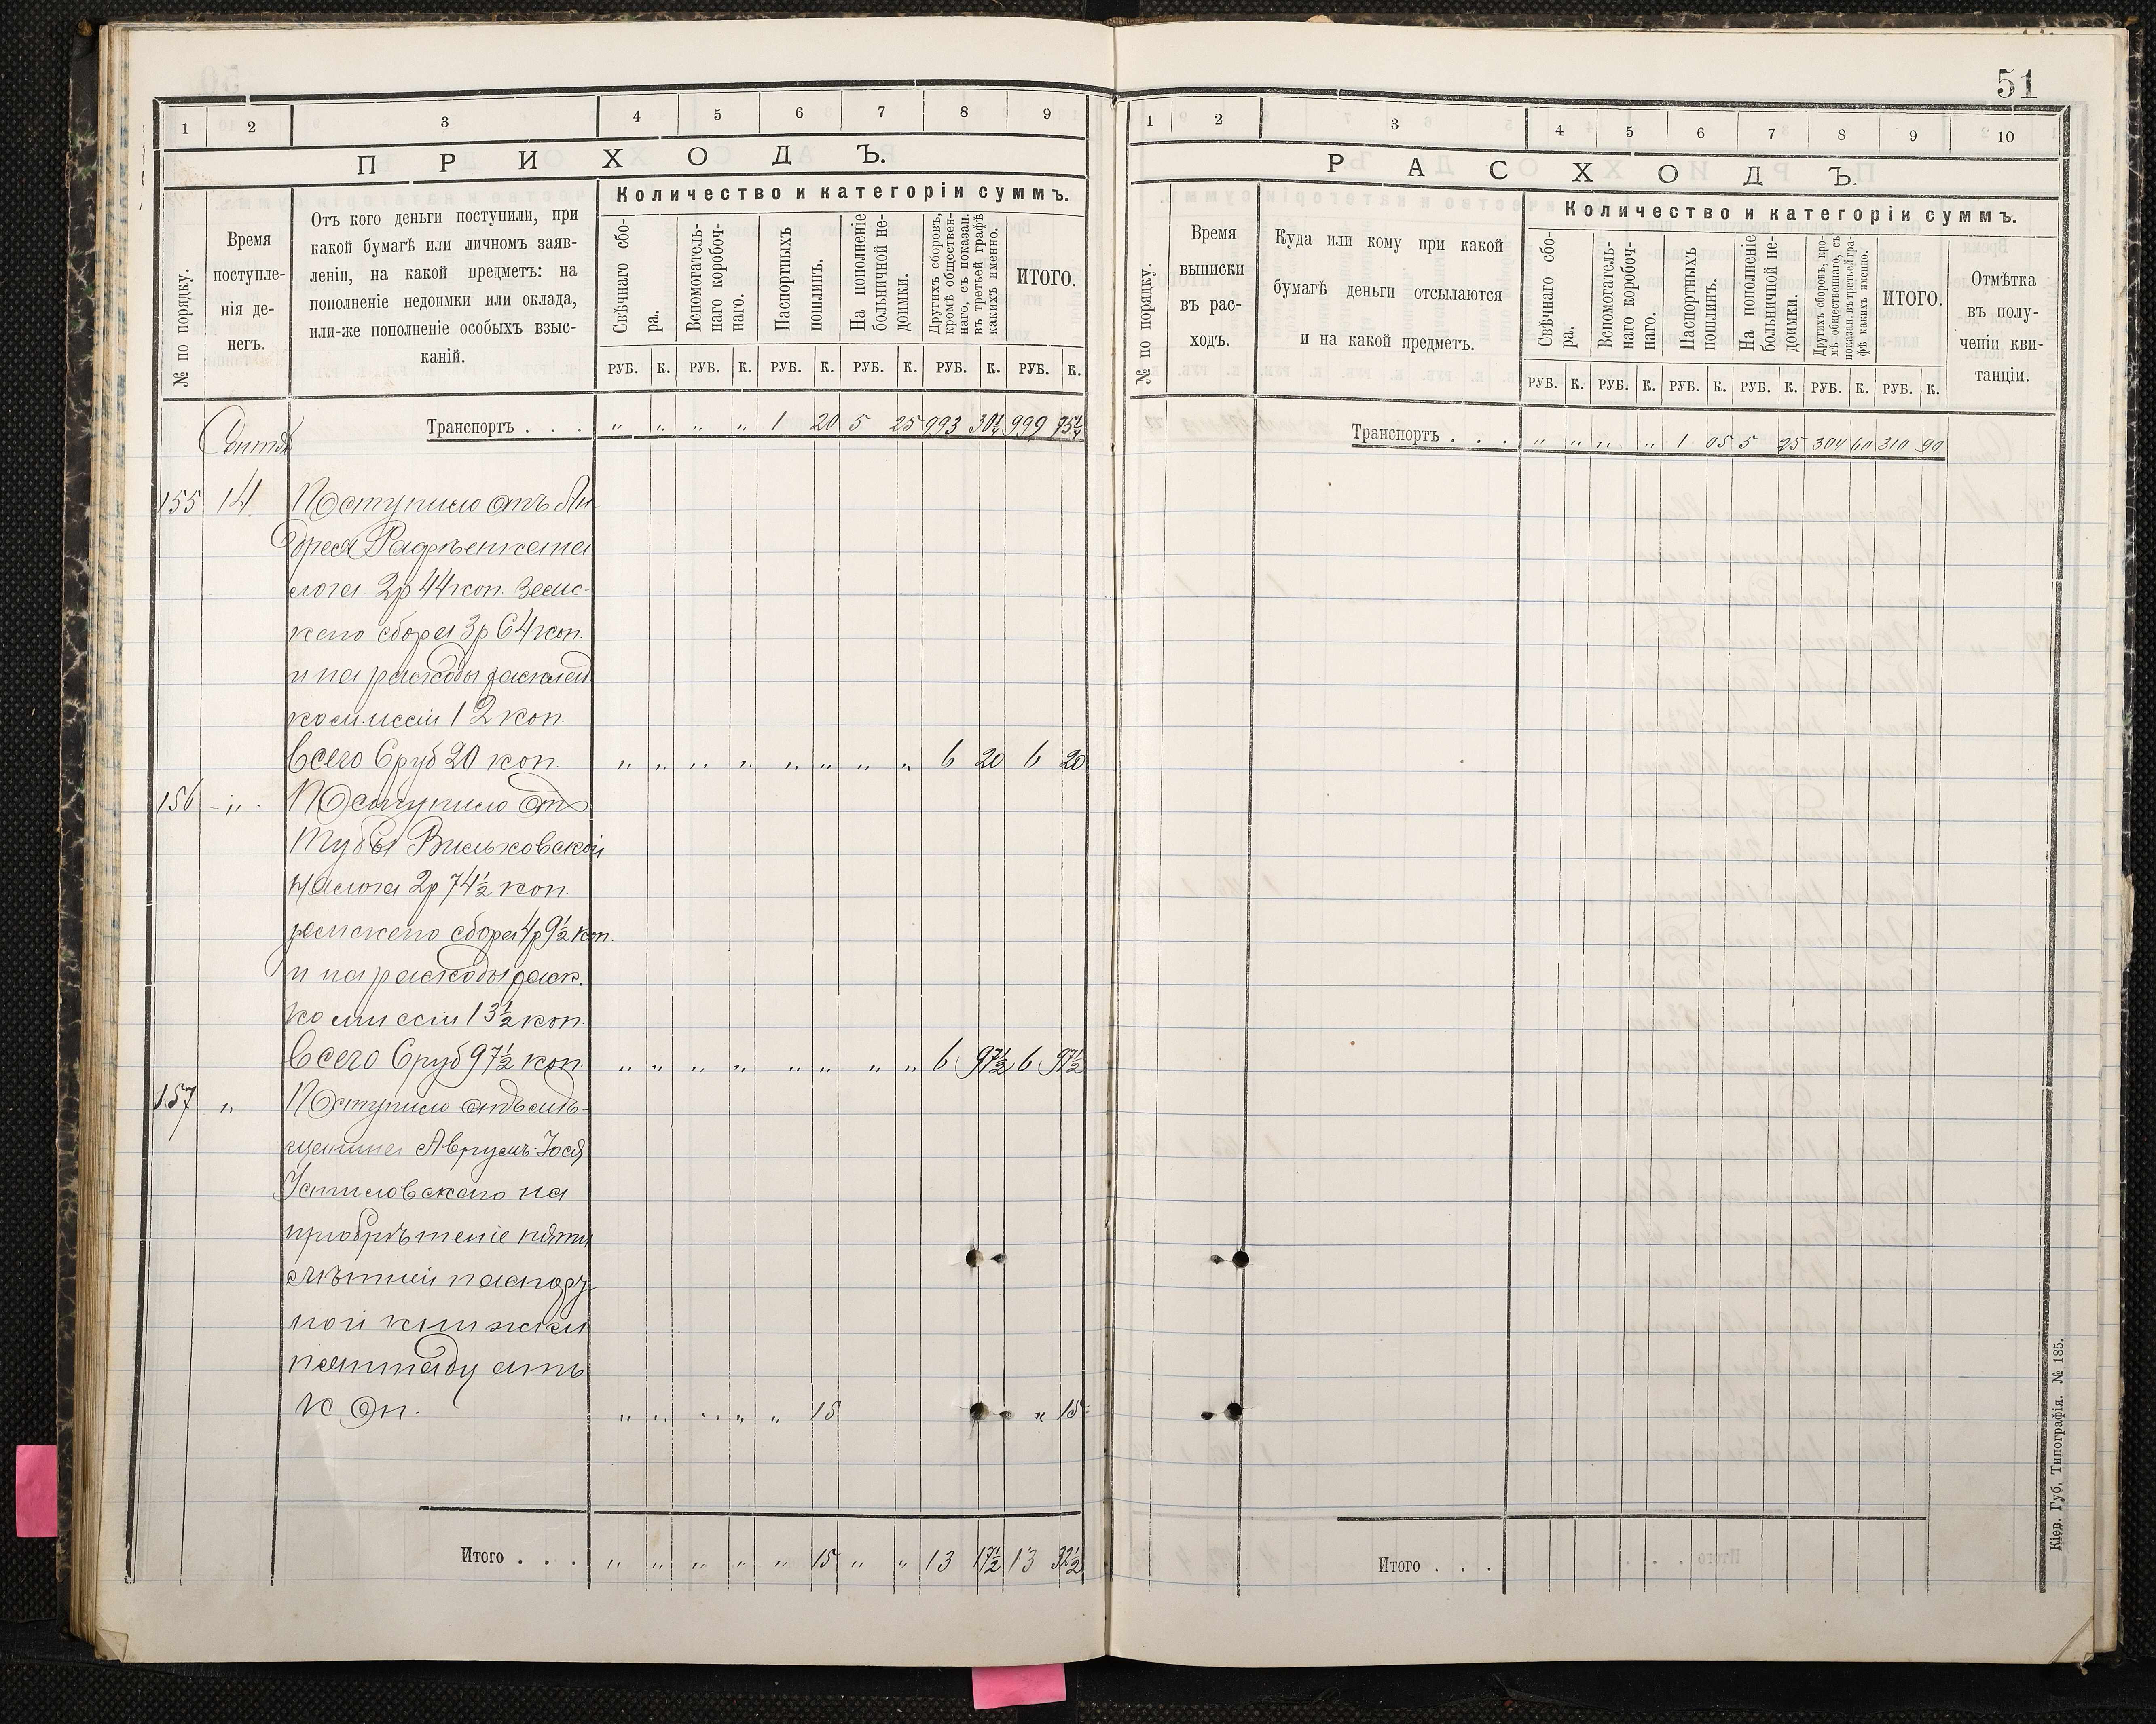 51
1 2 3 4 5 6 7 8 9
ПРИХОДЪ.
№ по порядку.
Время
поступле-
нія де-
негъ.
Отъ кого деньги поступили, при
какой бумагѣ или личномъ заяв-
леніи, на какой предметъ: на
пополненіе недоимки или оклада,
или-же пополненіе особыхъ взыс-
каній.
Количество и категоріи суммъ.
Свѣчнаго сбо-
ра.
Вспомогатель-
наго коробоч-
наго.
Паспортныхъ
пошлинъ.
На пополненіе
больничной не-
доимки.
Другихъ сборовъ,
кромѣ обществен-
наго, съ показан.
въ третьей графѣ
какихъ именно.
ИТОГО.
РУБ. К. РУБ. К. РУБ. К. РУБ. К. РУБ. К. РУБ. К.
Транспортъ . . . " " " " 1 20 5 25 993 30¼ 999 75¼
155 14 Поступило отъ Ан
дрея на
лога 2р 44 коп. земс-
каго сбора 3р 64 коп.
и на расходы расклад
комиссіи 12 коп.
Всего 6 руб 20 коп. " " " " " " " " 6 20 6 20
156 - " - Поступило отъ
Вильховской
налога 2р 74½ коп.
земскаго сбора 4р 9½ коп.
и на расходы раск.
комиссіи 13½ коп.
Всего 6 руб 97½ коп. " " " " " " " " 6 97½ 6 97½
157 " Поступило отъ мѣ-
щанина Аврумъ-Іося
на
пріобрѣтеніе пяти
лѣтней паспорт
ной книжки
пятнадцать
коп. " " " " " 15 " 15
Итого . . . " " " " " 15 " " 13 17½ 13 32½
1 2 3 4 5 6 7 8 9 10
РАСХОДЪ.
№ по порядку.
Время
выписки
въ рас-
ходъ.
Куда или кому при какой
бумагѣ деньги отсылаются
и на какой предметъ.
Количество и категоріи суммъ.
Свѣчнаго сбо-
ра.
Вспомогатель-
наго коробоч-
наго.
Паспортныхъ
пошлинъ.
На пополненіе
больничной не-
доимки.
Другихъ сборовъ, кро-
мѣ общественнаго, съ
показан. въ третьей гра-
фѣ какихъ именно.
ИТОГО.
Отмѣтка
въ полу-
ченіи кви-
танціи.
РУБ. К. РУБ. К. РУБ. К. РУБ. К. РУБ. К. РУБ. К.
Транспортъ . . . " " " " 1 05 5 25 304 60 310 90
Итого . . .
Кіев. Губ. Типографія. № 185.